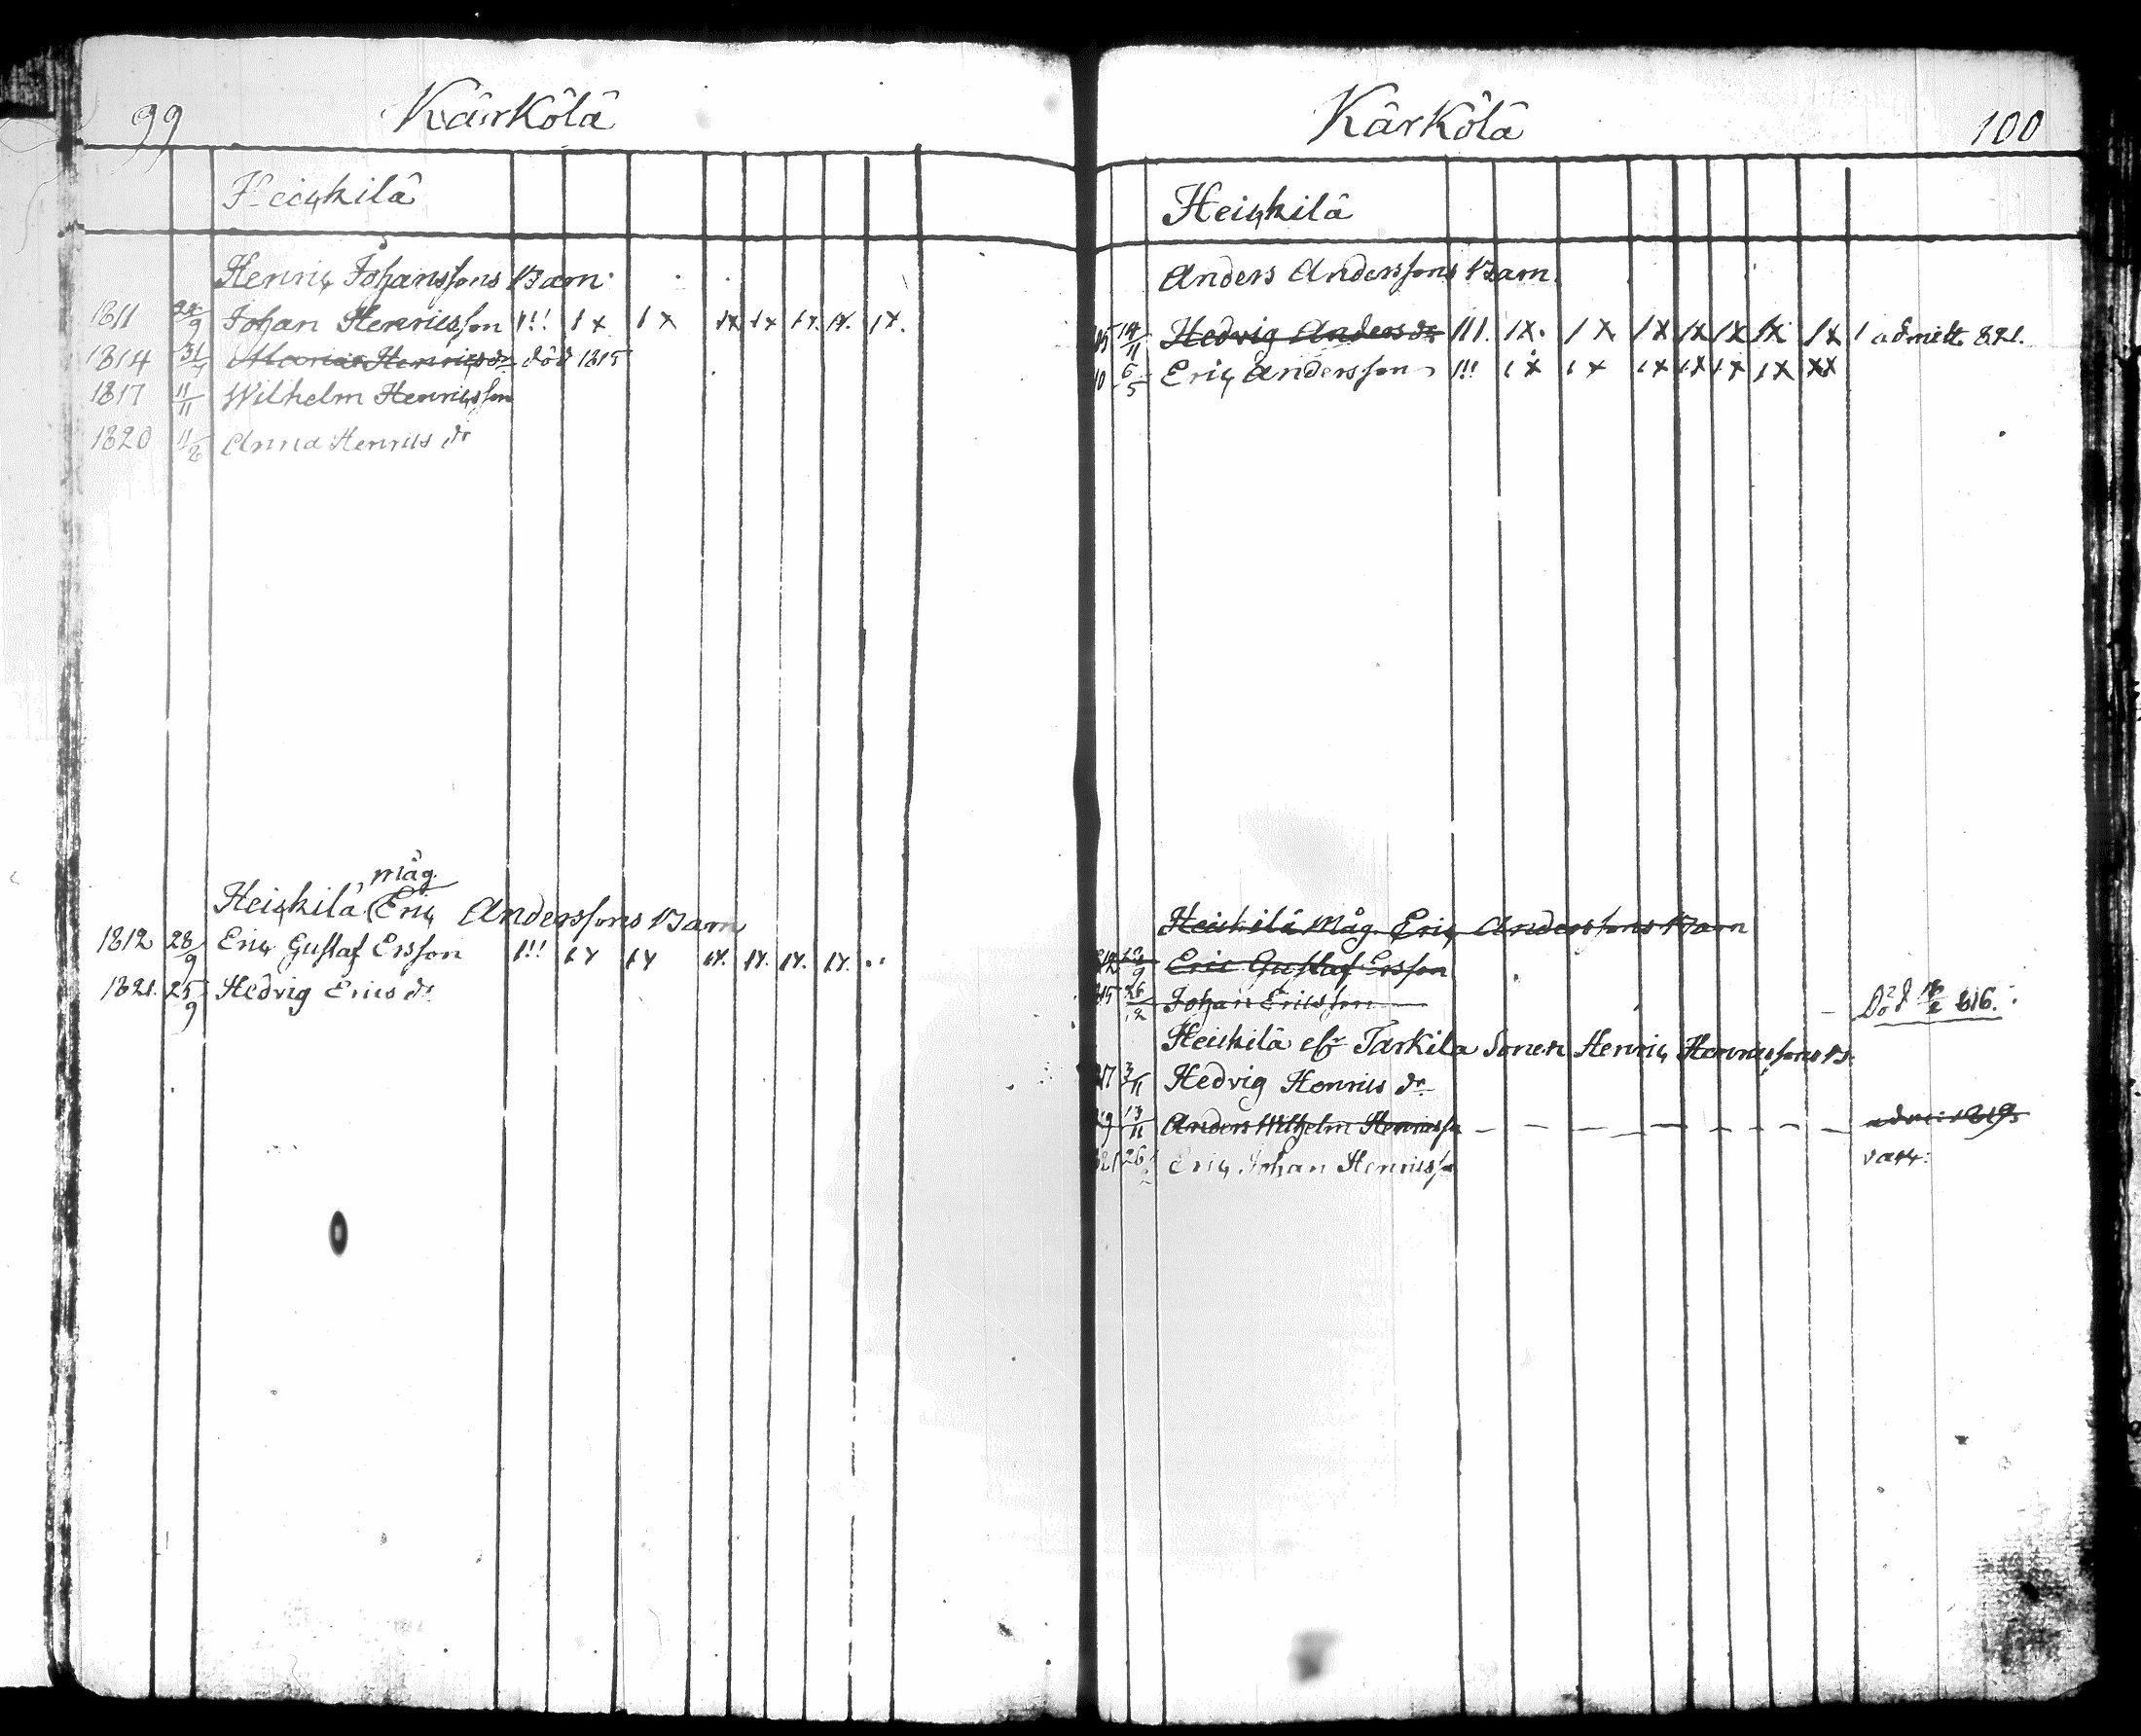 99 Kårkôlâ
Heickilâ
Henric Johanssons Barn
1811 24/9 Johan Henricsson 1!! 1 x 1 x 1x 1x 1x. 1x. 1x.
1814 31/ Maria Henricsdr död 1815
1817 11/11 Wilhelm Henricsson
1820 11/2 Anna Henrics dr
måg.
Heickilâ Eric Anderssons Barn
1812 28/9 Eric Gustaf Ersson 1!! 1x 1x 1x. 1x. 1x. 1x. ..
1821. 25/9 Hedvig Erics dr
Kârkôlâ 100
Heickilâ
Anders Anderssons Barn.
05 14/11 Hedvig Anders dr 111. 1x. 1 x 1x 1x 1x 1x 1x 1 admitt. 821.
10 6/5 Eric Andersson 1!! 1x 1x 1x 1x 1x 1x xx
Heickilâ Måg. Eric Anderssons Barn
Eric Gustaf Ersson
815 26/12 Johan Ericsson Död 616.
Heickilâ Tarkila Sonen Henric Henricssons B.
17 3/11 Hedvig Henrics dr
19 13/11 Anders Wilhelm Henricss 1819
821 26/ Eric Johan Henricss